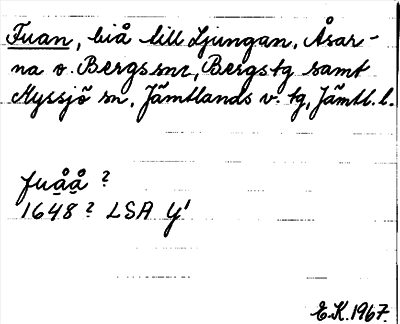 Fuan, biå till Ljungan, Åsar-
na o. Bergs snr, Bergs tg samt
Myssjö sn, Jämtlands v. tg, Jämtl. l.
fuåå ?
1648 ? LSA Y¹
E.K. 1967.